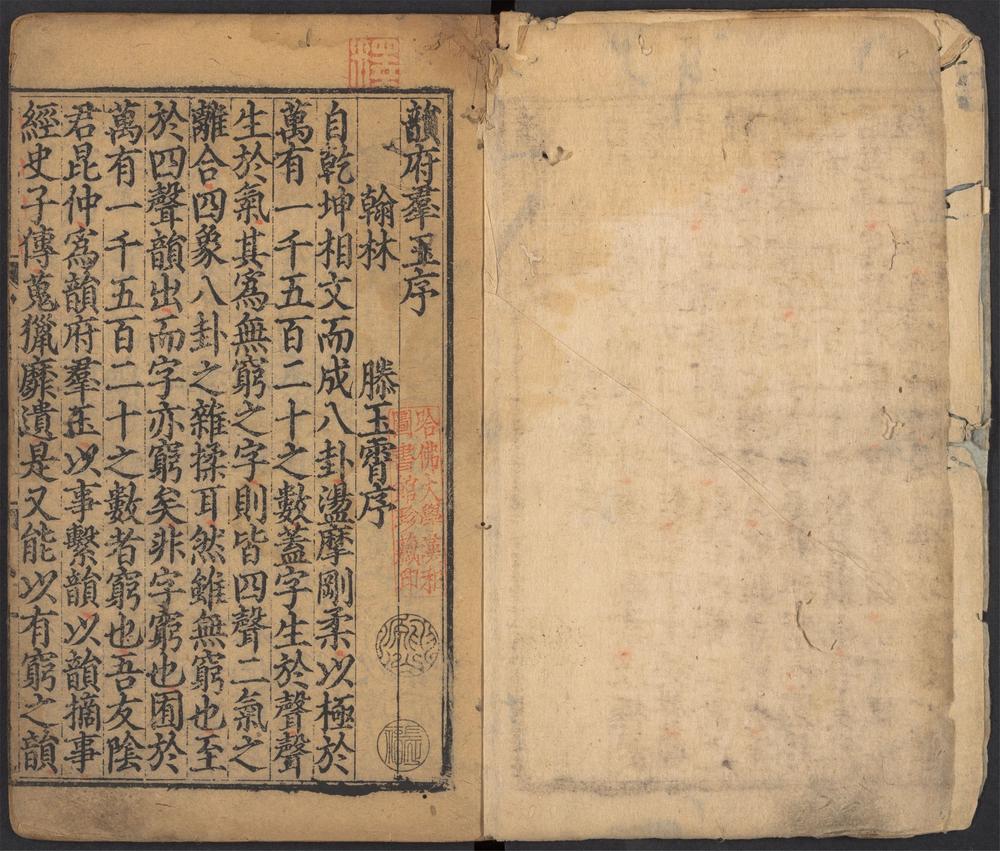 韻府羣玉序
翰林 滕玉霄序
自乾坤相文而成八卦盪摩剛柔以極於
萬有一千五百二十之數蓋字生於聲聲
生於氣其爲無窮之字則皆四聲二氣之
離合四象八卦之雜揉耳然雖無窮也至
於四聲韻出而字亦窮矣非字窮也囿於
萬有一千五百二十之數者窮也吾友陰
君昆仲爲韻府羣玉以事繫韻以韻摘事
經史子傳蒐獵靡遺是又能以有窮之韻
哈佛大學漢和
圖書館珍藏印